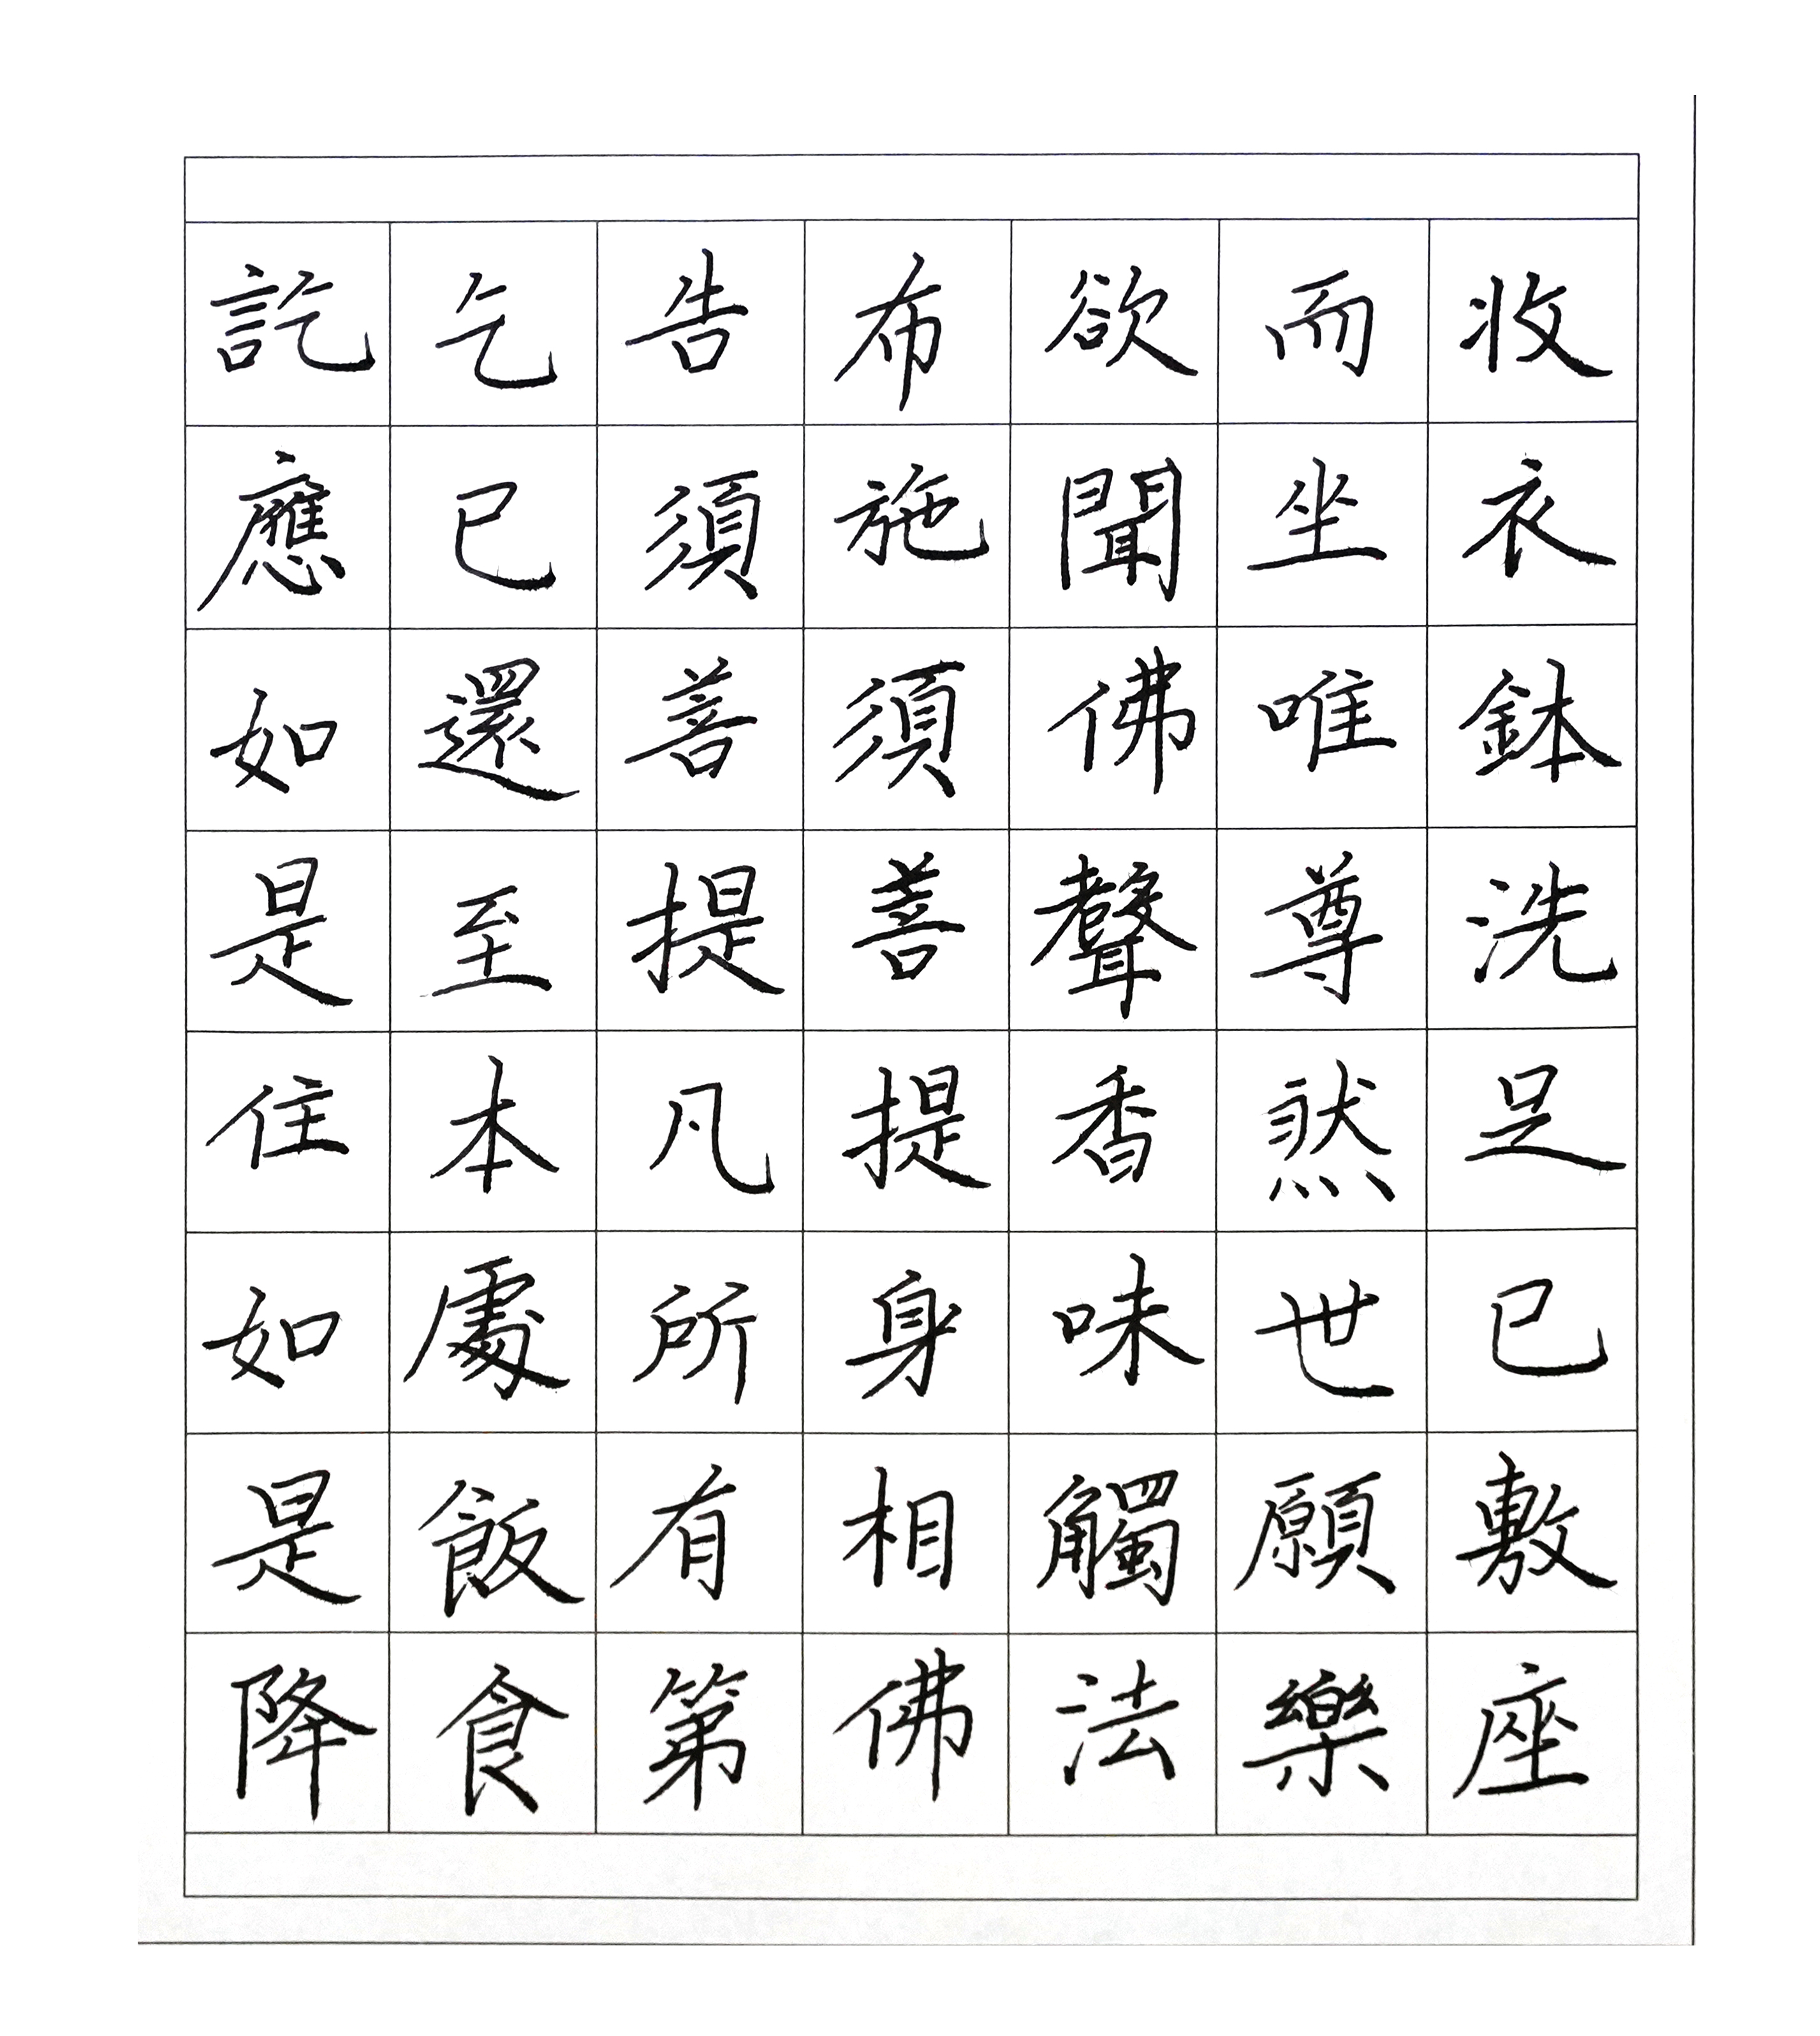 收衣鉢洗足已敷座
而坐唯尊然世願樂
欲聞佛聲香味觸法
布施須菩提身相佛
告須菩提凡所有第
乞已還至本處飯食
訖應如是住如是降